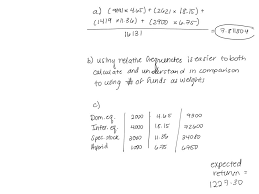 a) (9191 × 4.65) + (2621 × 18.15) +
(1419 × 11.36) + (2900 × 6.75)
16131
= 7.81504
b) using relative frequencies is easier to both
calculate and understand in comparison
to using # of funds as weights
c)
Dom. eq. 2000 4.65 9300
Inter. eq. 4000 18.15 72600
Spec stock 3000 11.36 34080
Hybrid 1000 6.75 6750
expected
return =
1227.30